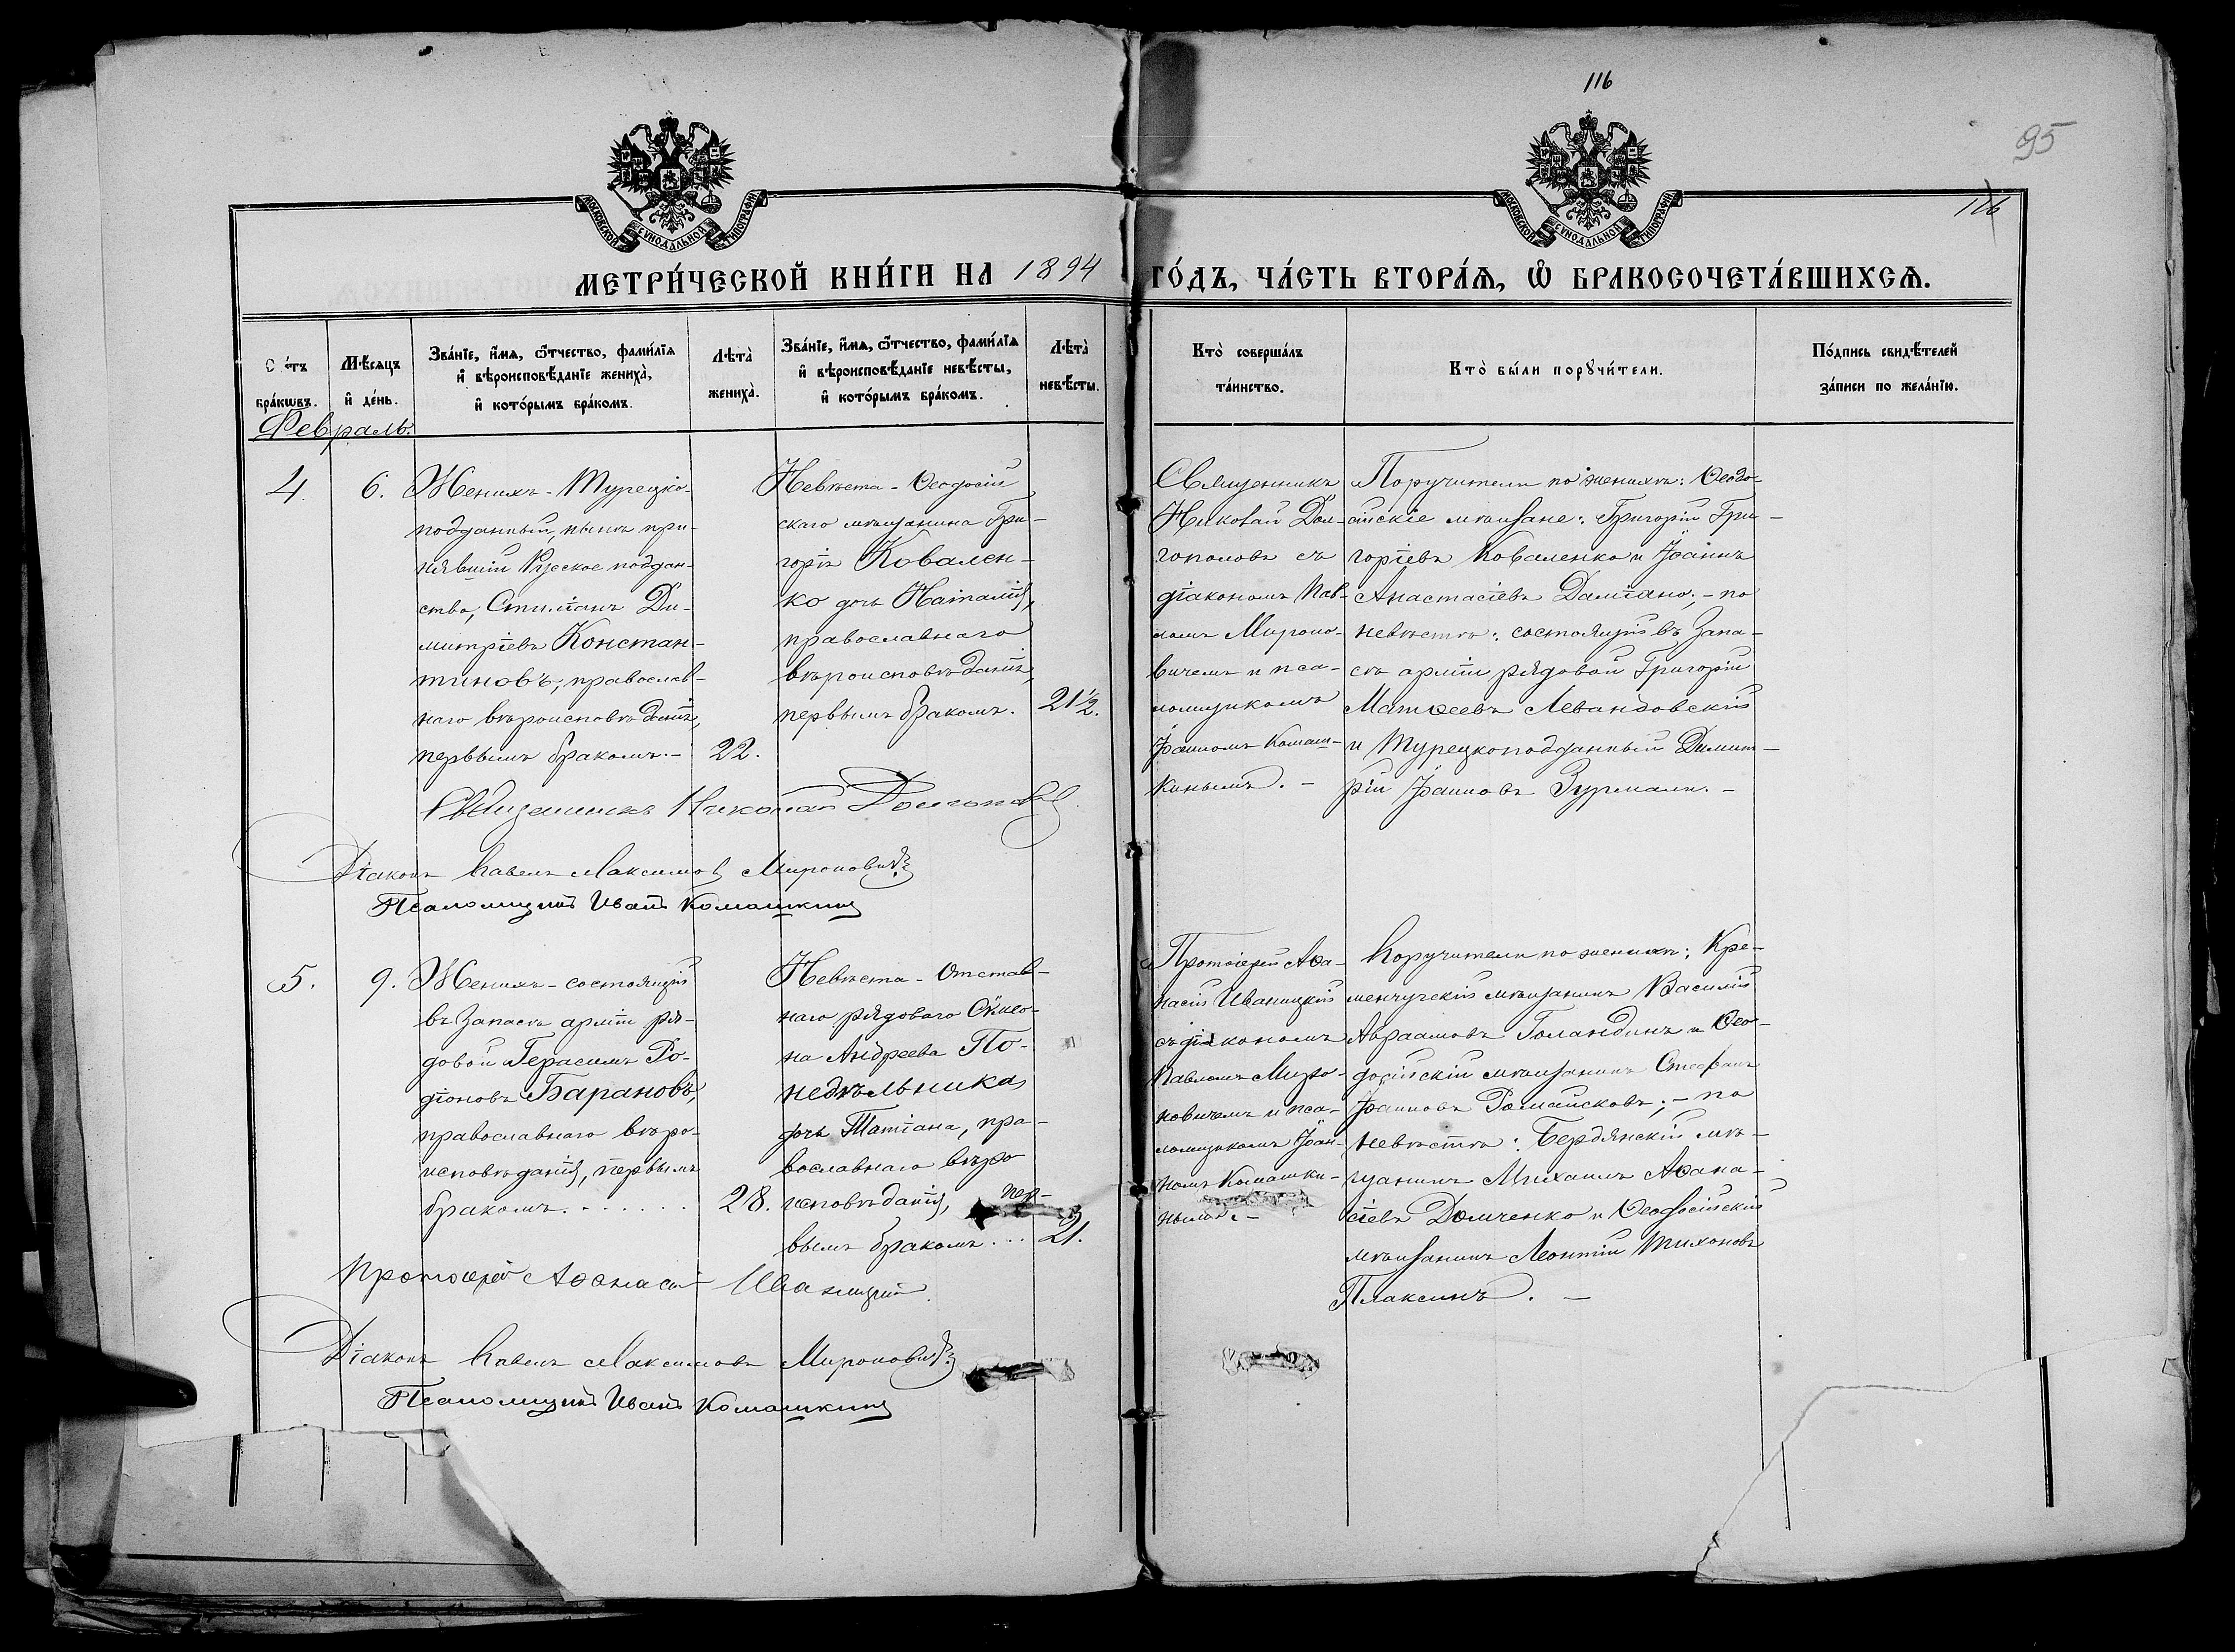 116
95
116
МОСКОВСКОЙ СУНОДАЛЬНОЙ ТИПОГРАФІИ
МОСКОВСКОЙ СУНОДАЛЬНОЙ ТИПОГРАФІИ
МЕТРИ́ЧЕСКОЙ КНИ́ГИ НА 1894 ГО́ДЪ, ЧА́СТЬ ВТОРА́Я, Ѡ҆ БРАКОСОЧЕТА́ВШИХСЯ.
С ётъ бра́кѡвъ.
Мѣ́сяцъ и҆ де́нь.
Зва́нїе, и҆́мя, ѻ҆́тчество, фами́лїя
и҆ вѣроисповѣ́данїе жениха̀,
и҆ кото́рымъ бра́комъ.
Лѣта̀ жениха̀.
Зва́нїе, и҆́мя, ѻ҆́тчество, фами́лїя
и҆ вѣроисповѣ́данїе невѣ́сты,
и҆ кото́рымъ бра́комъ.
Лѣта̀ невѣ́сты.
Кто̀ соверша́лъ
та́инство.
Кто̀ бы́ли порꙋчи́тели.
По́дпись свидѣ́телей
за́писи по жела́нїю.
Февраль.
4.
6.
Женихъ - Турецко-
подданный, нынѣ при-
нявшій Руское поддан-
ство, Стиліанъ Ди-
митріевъ Констан-
тиновъ, православ-
наго вѣроисповѣданія,
первымъ бракомъ. -
22.
Невѣста - Ѳеодосій
скаго мѣщанина Гри-
горія Ковален-
ко дочь Наталія,
православнаго
вѣроисповѣданія,
первымъ бракомъ.
21½.
Священникъ
Николай Дол-
гополовъ съ
діакономъ Пав-
ломъ Мироно-
вичемъ и пса-
ломщикомъ
Іоанномъ Комаш-
кинымъ. -
Поручители по женихѣ: Ѳеодо-
сійскіе мѣщане: Григорій Гри-
горіевъ Коваленко и Іоаннъ
Анастасіевъ Даліано; - по
невѣстѣ: состоящій въ запа-
сѣ арміи рядовой Григорій
Матѳеевъ Левандовскій
и Турецкоподданный Димит-
рій Іоанновъ Зурмали. -
Священникъ Николай Долгополов
Діаконъ Павелъ Максимов Мироновичъ
Псаломщикъ Иванъ Комашкинъ
5.
9.
Женихъ - состоящій
въ запасѣ арміи ря-
довой Герасимъ Ро-
діоновъ Барановъ,
православнаго вѣро-
исповѣданія, первымъ
бракомъ. - - - - - -
28.
Невѣста - Отстав-
наго рядоваго Сѵмео-
на Андреева По-
недѣльника
дочь Татіана, пра-
вославнаго вѣро-
исповѣданія, пер-
вымъ бракомъ . . .
21.
Протоіерей Аѳа-
насій Иваницкій
съ діакономъ
Павломъ Миро-
новичемъ и пса-
ломщикомъ Іоан-
номъ Комашки-
нымъ. -
Поручители по женихѣ: Кре-
менчугскій мѣщанинъ Василій
Авраамовъ Голандинъ и Ѳео-
досійскій мѣщанинъ Стефанъ
Іоанновъ Романсковъ; - по
невѣстѣ: Бердянскій мѣ-
щанинъ Михаилъ Аѳана-
сіевъ Домченко и Ѳеодосійскій
мѣщанинъ Леонтій Тихоновъ
Плаксинъ. -
Протоіерей Аѳанасій Иваницкій.
Діаконъ Павелъ Максимовъ Мироновичъ
Псаломщикъ Иванъ Комашкинъ